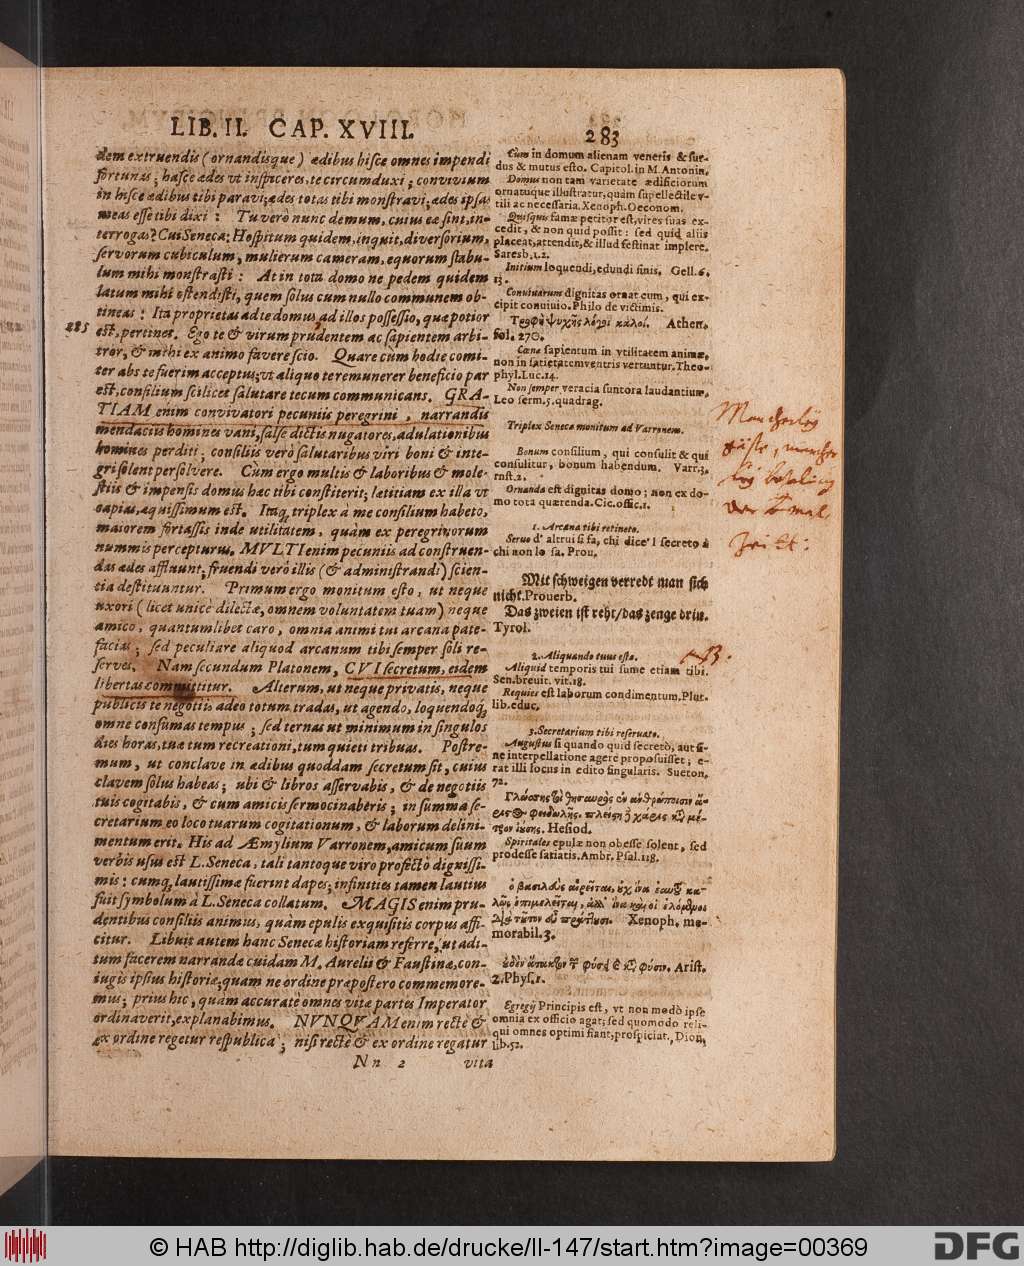 LIB. II. CAP. XVIII. 283
dem extruendis (ornandisque) ædibus hisce omnes impendi
fortunas; hasce ædes vt inspiceres, te circumduxi; convivium
in hisce ædibus tibi paravi; ædes totas tibi monstravi; ædes ipsas
meas esse tibi dixi: Tu verò nunc demum, cuius eæ sint, in-
terrogas? Cui Seneca: Hospitum quidem, inquit, diversorium,
servorum cubiculum, mulierum cameram, equorum stabu-
lum mihi monstrasti: At in tota domo ne pedem quidem
latum mihi ostendisti, quem solus cum nullo communem ob-
tineas: Ita proprietas ad te domus, ad illos possessio, quæ potior
285
est, pertinet. Ego te & virum prudentem ac sapientem arbi-
tror, & mihi ex animo favere scio. Quare cum hodie comi-
ter abs te fuerim acceptus; vt aliquo te remunerer beneficio par
est, consilium scilicet salutare tecum communicans. GRA-
TIAM enim convivatori pecuniis peregrini, narrandis
mendaciis homines vani, salse dictis nugatores, adulationibus
homines perditi; consiliis verò salutaribus viri boni & inte-
gri solent persolvere. Cùm ergo multis & laboribus & mole-
stiis & impensis domus hæc tibi constiterit; letitiam ex illa vt
capias, æquissimum est. Itaq, triplex à me consilium habeto,
maiorem fortassis inde utilitatem, quàm ex peregrinorum
nummis percepturus. MVLTI enim pecuniis ad construen-
das ædes affluunt; fruendi verò illis (& administrandi) scien-
tia destituuntur. Primum ergo monitum esto, ut neque
uxori (licet unicè dilectæ, omnem voluntatem tuam) neque
amico, quantumlibet caro, omnia animi tui arcana pate-
facias; sed peculiare aliquod arcanum tibi semper soli re-
serves. Nam secundum Platonem, CVI secretum, eidem
libertas committitur. Alterum, ut neque privatis, neque
publicis te negotiis adeo totum tradas, ut agendo, loquendoq,
omne consumas tempus; sed ternas ut minimum in singulos
dies horas, tuæ tum recreationi, tum quieti tribuas. Postre-
mum, ut conclave in ædibus quoddam secretum sit, cuius
clavem solus habeas; ubi & libros asservabis, & de negotiis
tuis cogitabis, & cum amicis sermocinaberis; in summa se-
cretarium eo loco tuarum cogitationum, & laborum delini-
mentum erit. His ad Æmylium Varronem, amicum suum
verbis usus est L. Seneca, tali tantoque viro profectò dignissi-
mis: cumq, lautissimæ fuerint dapes; infinities tamen lautius
fuit symbolum à L. Seneca collatum. MAGIS enim pru-
dentibus consiliis animus, quàm epulis exquisitis corpus affi-
citur. Libuit autem hanc Senecæ historiam referre, ut adi-
tum facerem narrandæ cuidam M. Aurelii & Faustinæ, con-
iugis ipsius historiæ; quam ne ordine præpostero commemore-
mus; prius hic, quàm accuratè omnes vitæ partes Imperator
ordinaverit, explanabimus. NVNQVAM enim rectè &
ex ordine regetur respublica; nisi rectè & ex ordine regatur
Nn 2 vita
Cùm in domum alienam veneris & sur-
dus & mutus esto. Capitol. in M. Antonin.
Domus non tam varietate ædificiorum
ornatuque illustratur, quàm supellectile v-
tili ac necessaria. Xenoph. Oeconom.
Quisquis famæ petitor est, vires suas ex-
cedit, & non quid possit: sed quid aliis
placeat, attendit, & illud festinat implere.
Saresb. 1.2.
Initium loquendi, edundi finis. Gell. 6.
13.
Convivarum dignitas ornat eum, qui ex-
cipit conuiuio. Philo de victimis.
Τροφὴ ψυχῆς λόγοι καλοί. Athen.
fol. 270.
Cœna sapientum in vtilitatem animæ,
non in satietatem ventris vertuntur. Theo-
phyl. Luc. 14.
Non semper veracia sunt ora laudantium,
Leo serm. 5. quadrag.
Triplex Senecæ monitum ad Varronem.
Bonum consilium, qui consulit & qui
consulitur, bonum habendum. Varr. 3.
rust. 2.
Ornanda est dignitas domo; non ex do-
mo tota quærenda. Cic. offic. 1.
1. Arcana tibi retineto.
Seruo d' altrui si fa, chi dice'l secreto à
chi non lo sa. Prou.
Mit schweigen verredt man sich
nicht. Prouerb.
Das zweien ist reht / das zenge drin.
Tyrol.
2. Aliquando tuus esto.
Aliquid temporis tui sume etiam tibi.
Sen. breuit. vit. 18.
Requies est laborum condimentum. Plut.
lib. educ.
3. Secretarium tibi reservato.
Augustus si quando quid secretò, aut si-
ne interpellatione agere proposuisset; e-
rat illi locus in edito singularis. Sueton.
72.
Γλώσσης τοι θησαυρὸς ἐν ἀνθρώποισιν ἄ-
ριστος φειδωλῆς. πλείστη δὲ χάρις κατὰ μέ-
τρον ἰούσης. Hesiod.
Spiritales epulæ non obesse solent, sed
prodesse satiatis. Ambr. Psal. 118.
ὁ βασιλεὺς αἱρεῖται, οὐχ ἵνα ἑαυτοῦ κα-
λῶς ἐπιμελεῖται, ἀλλ' ἵνα καὶ οἱ ἑλόμενοι
διὰ τοῦτον εὖ πράττωσι. Xenoph. me-
morabil. 3.
οὐδὲν ἄτακτον τῶν φύσει καὶ κατὰ φύσιν. Arist.
2. Phys. 1.
Egregij Principis est, vt non modò ipse
omnia ex officio agat; sed quomodo reli-
qui omnes optimi fiant, prospiciat. Dion,
lib. 52.
Mancherley
gäste, mancher
ley bezalung
© HAB http://diglib.hab.de/drucke/ll-147/start.htm?image=00369
DFG